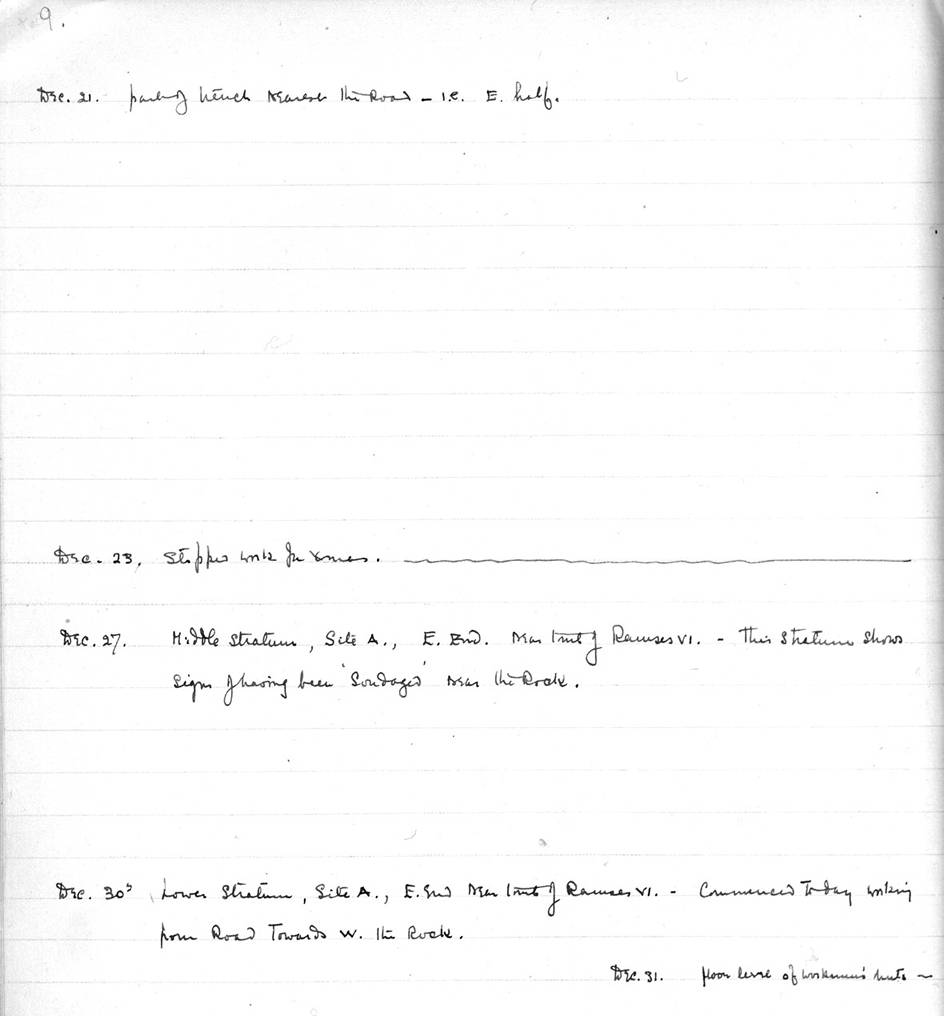 9.
Dec. 21. part of trench nearest the Road – i.e. E. half.
Dec. 23. Stopped work for Xmas.
Dec. 27. Middle stratum, Site A., E. End. Near tomb of Ramses VI. - This stratum shows
signs of having been 'Sondaged' near the Rock.
Dec. 30th Lower Stratum, Site A., E. End Near tomb of Ramses VI. - Commenced today working
from Road towards W. the Rock.
Dec. 31. floor level of workmen's huts –